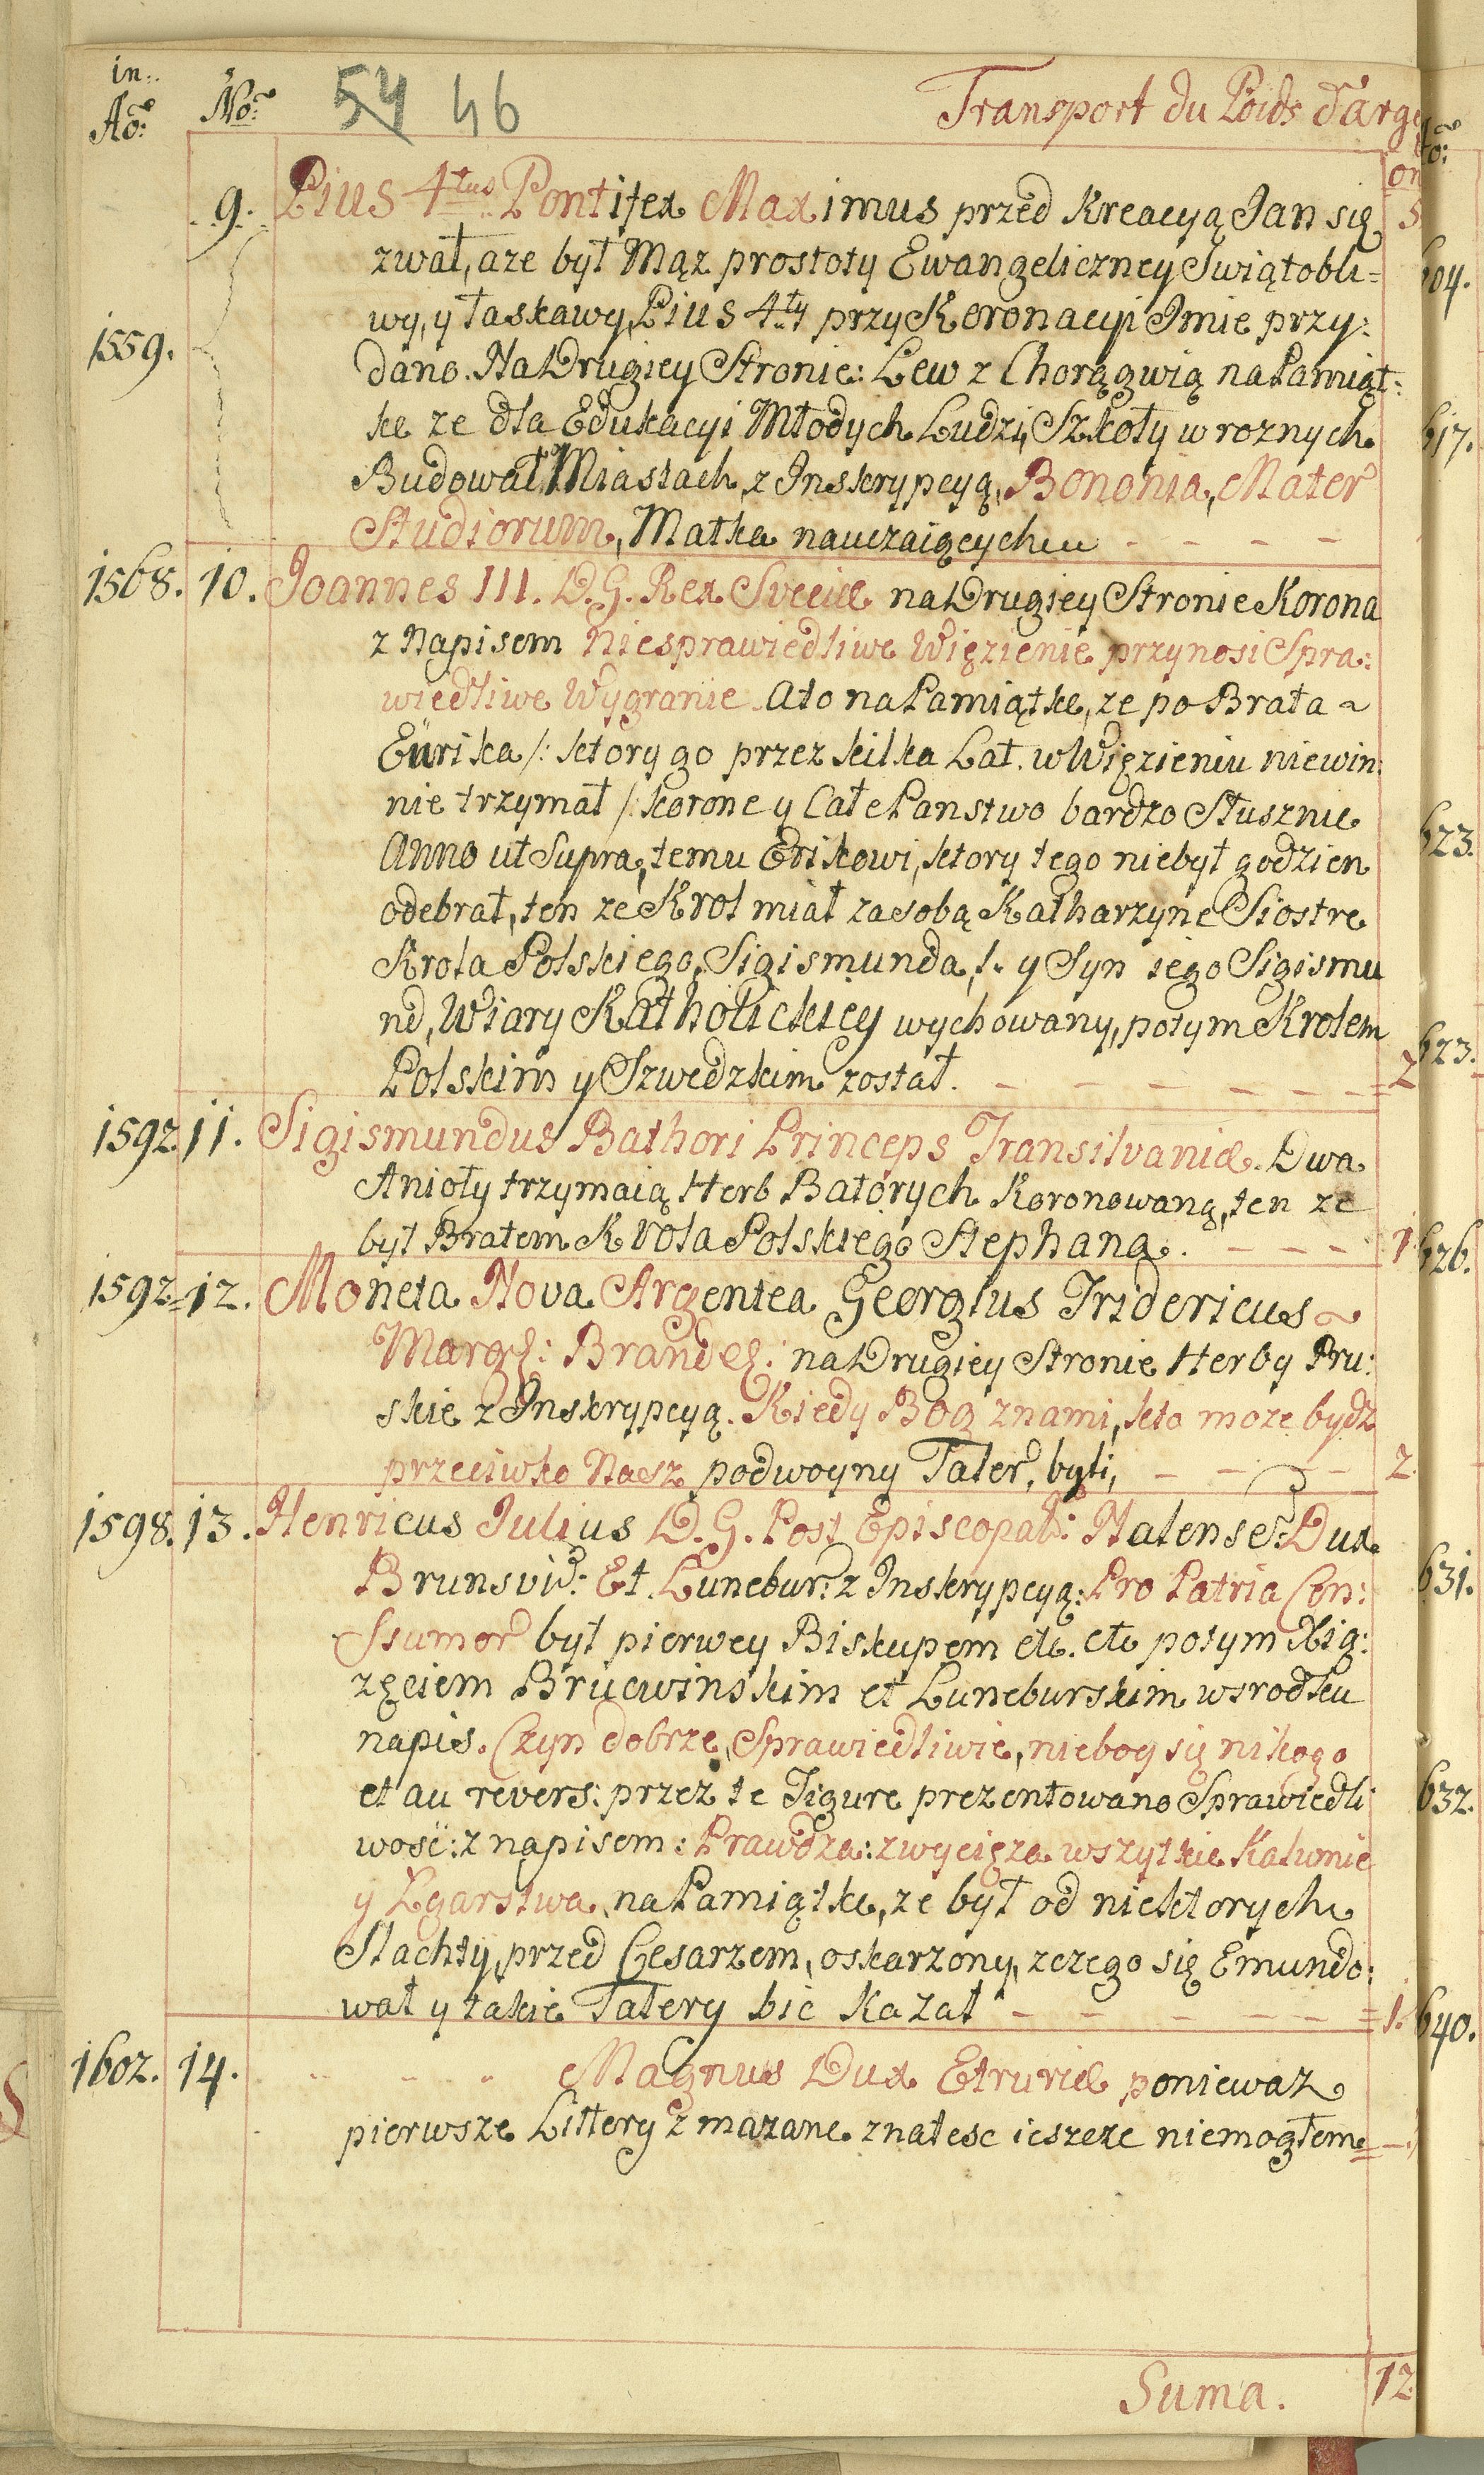 in:
Aõ: Nõ: 54 46 Transport du Poids d'arge
9. Pius 4tus Pontifex Maximus przed Kreacyą Jan się 5
zwał, aze był Mąz prostoty Ewangeliczney Swiątobli=
wy, y łaskawy, Pius 4ty przy Koronacyi Imie przy:
1559. dano. Na Drugiey Stronie: Lew z Chorągwią na Pamiąt:
kę ze dla Edukacyi Młodych Ludzi, Szkoły w roznych
Budował Miastach, z Inskrypcyą, Bononia, Mater
Studiorum, Matka nauczaiących
1568. 10. Joannes III. D. G. Rex Sveciæ na Drugiey Stronie Korona
z Napisem Niesprawiedliwe Więzienie przynosi Spra:
wiedliwe Wygranie Ato na Pamiątkę, ze po Brata
Eürika /: ktory go przez kilka Lat. w Więzieniu niewin:
nie trzymał /: korone y Całe Panstwo bardzo Słusznie
Anno ut Supra, temu Erikowi, ktory tego niebył godzien
odebrał, ten ze Krol miał za sobą Katharzyne Siostre
Krola Polskiego, Sigismunda, /. y Syn iego Sigismu
nd, Wiary Katholickiey wychowany, potym Krolem
Polskim y Szwedzkim został. 2
1592. 11. Sigismundus Bathori Princeps Transilvaniæ. Dwa
Anioły trzymaią Herb Batorych Koronowaną, ten ze
był Bratem Krola Polskiego Stephana. 1
1592. 12. Moneta Nova Argentea Georgius Fridericus
Margf: Brandef: na Drugiey Stronie Herby Pru:
skie z Inskrypcyą. Kiedy Bog znami, kto moze bydz
przeciwko Nasz podwoyny Taler, byli, 2.
1598. 13. Henricus Julius D. G. Post Episcopat: Halense: Dux
Brunsvid: Et Lunebur: z Inskrypcyą: Pro Patria Con:
Ssumor był pierwey Biskupem etc. etc potym Xią:
zęciem Brucwinskim et Luneburskim wsrodku
napis. Czyn dobrze, Sprawiedliwie, nieboy się nikogo
et au revers: przez te Figure prezentowano Sprawiedli
wosć: z napisem: Prawdza: zwycięza wszytkie Kalumie
y Łgarstwa, na Pamiątkę, ze był od niektorych
Slachty, przed Cesarzem, oskarzony, zczego się Emundo:
wał y takie Talery bic Kazał 1.
1602. 14. Magnus Dux Etruriæ poniewaz
pierwsze Littery zmazane znalesc ieszcze niemogłem
Suma. 12
604.
617.
623.
623.
626.
631.
632.
640.